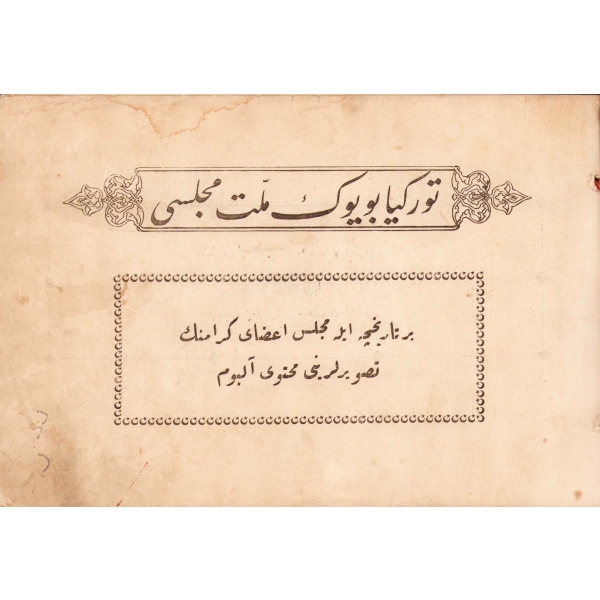 تورکیا بویوک ملّت مجلسی
بر تاریخچه ایله مجلس اعضای کرامنك
تصویرلرینی محتوی آلبوم